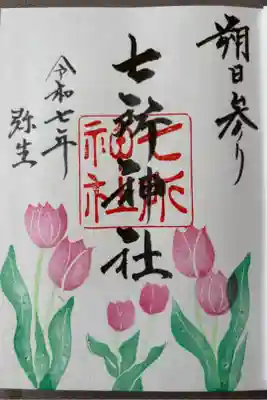 朔日参り
七所神社
七所神社
令和七年
弥生